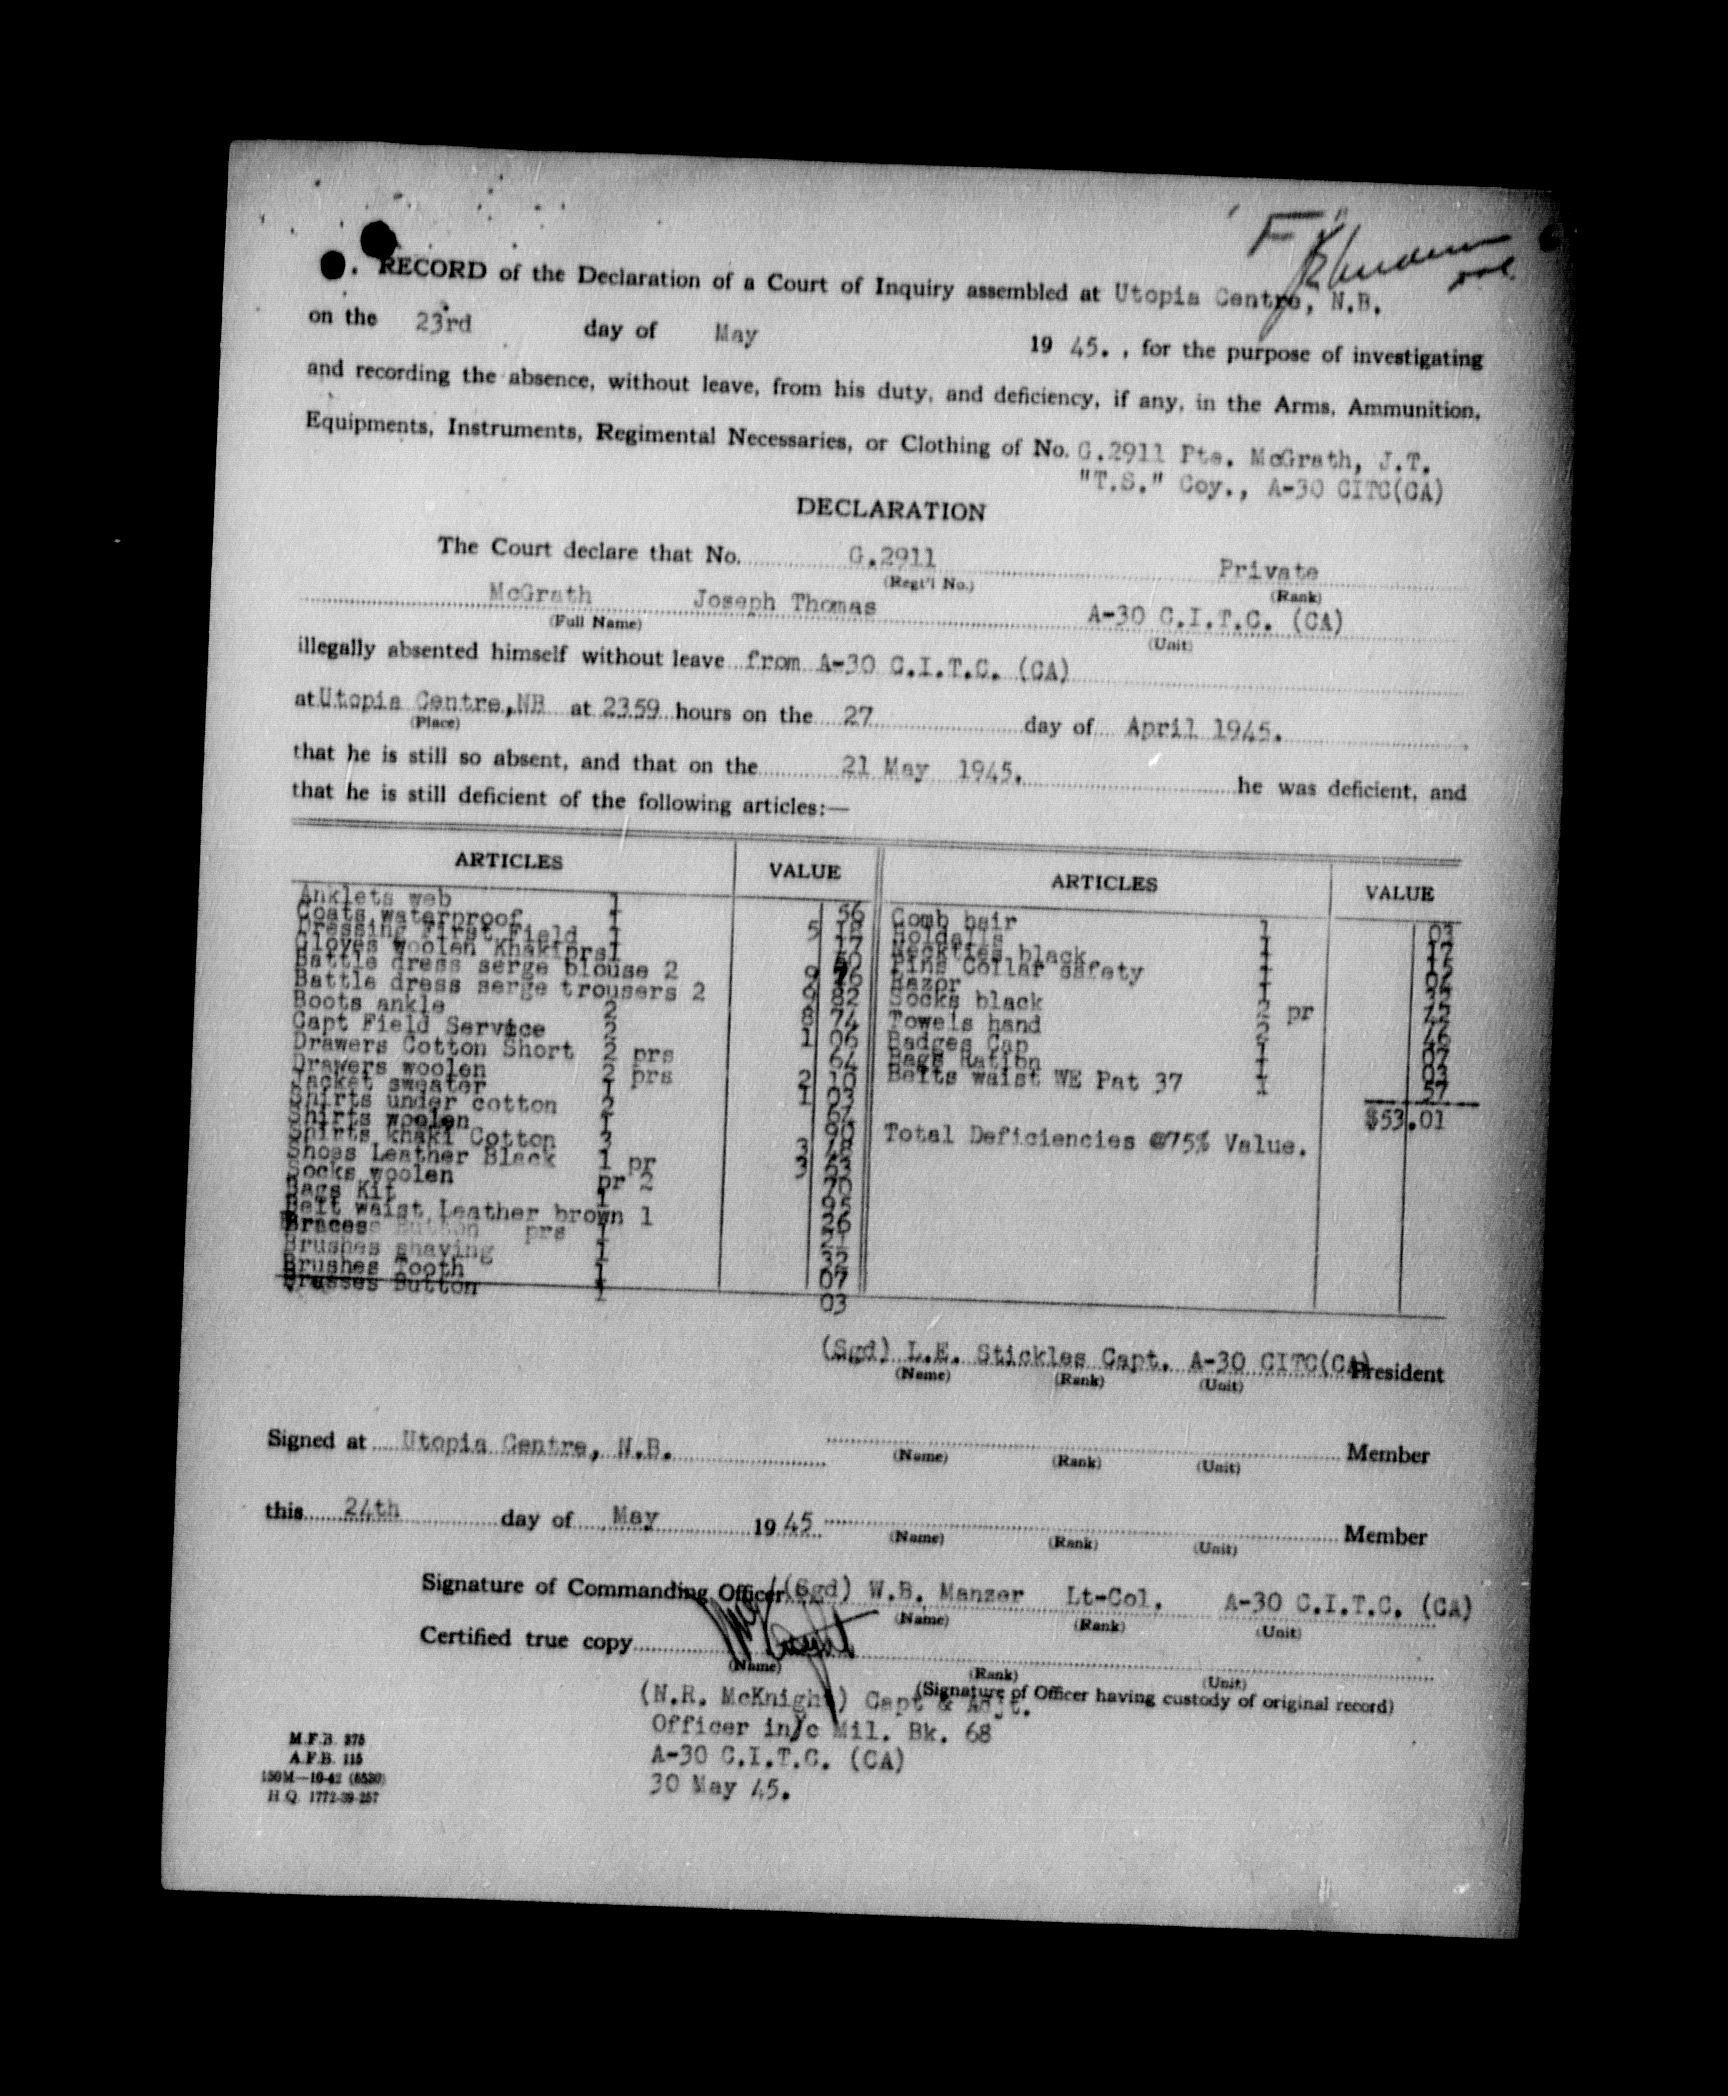 RECORD of the Declaration of a Court of Inquiry assembled at Utopia Centre, N.B.
on the 23rd day of May 19 45. , for the purpose of investigating
and recording the absence, without leave, from his duty, and deficiency, if any, in the Arms, Ammunition,
Equipments, Instruments, Regimental Necessaries, or Clothing of No. G.2911 Pte. McGrath, J.T.
"T.S." Coy., A-30 CITC(CA)
DECLARATION
The Court declare that No. G.2911 Private
(Regt'l No.) (Rank)
McGrath Joseph Thomas A-30 C.I.T.C. (CA)
(Full Name) (Unit)
illegally absented himself without leave from A-30 C.I.T.C. (CA)
at Utopia Centre,NB at 2359 hours on the 27 day of April 1945.
(Place)
that he is still so absent, and that on the 21 May 1945. he was deficient, and
that he is still deficient of the following articles:—
ARTICLES VALUE ARTICLES VALUE
Anklets web 1 56 Comb hair 1 03
Coats waterproof 1 5 Holdalls 1
Dressing First Field 1 17 Neckties black 1
Gloves woolen Khaki prs1 Pins Collar safety 1 02
Battle dress serge blouse 2 9 Razor 1
Battle dress serge trousers 2 9 82 Socks black 2 pr 72
Boots ankle 2 8 74 Towels hand 2 46
Capt Field Service 2 1 06 Badges Cap 1 07
Drawers Cotton Short 2 prs 64 Bags Ration 1 03
Drawers woolen 2 prs 2 10 Belts waist WE Pat 37 1 57
Jacket sweater 1 1 03 $53.01
Shirts under cotton 2 64
Shirts woolen 1 90 Total Deficiencies @75% Value.
Shirts khaki Cotton 3 3 78
Shoes Leather Black 1 pr 3 53
Socks woolen pr 2 70
Bags Kit 1 95
Belt waist Leather brown 1 26
Braces Button prs 1 21
Brushes shaving 1 32
Brushes Tooth 1 07
Brasses Button 1 03
(Sgd) L.E. Stickles Capt. A-30 CITC(CA) President
(Name) (Rank) (Unit)
Signed at Utopia Centre, N.B. Member
(Name) (Rank) (Unit)
this 24th day of May 19 45 Member
(Name) (Rank) (Unit)
Signature of Commanding Officer (Sgd) W.B. Manzer Lt-Col. A-30 C.I.T.C. (CA)
(Name) (Rank) (Unit)
Certified true copy
(Name) (Rank) (Unit)
(Signature of Officer having custody of original record)
(N.R. McKnight) Capt & Adjt.
Officer in/c Mil. Bk. 68
A-30 C.I.T.C. (CA)
30 May 45.
M.F.B. 375
A.F.B. 115
150M—10-42 (6530)
H.Q. 1772-39-257